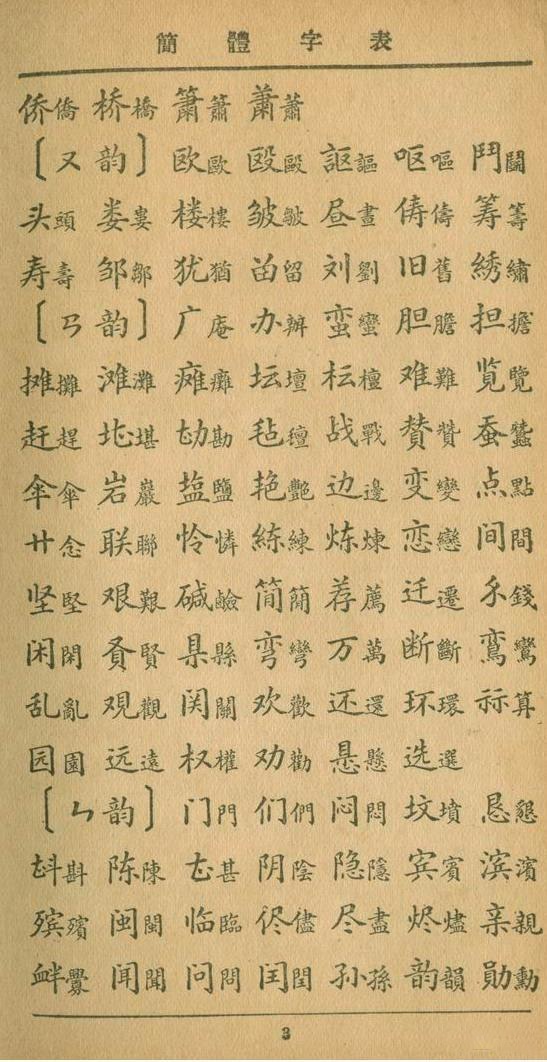 簡體字表
侨僑 桥橋 箫簫 萧蕭
〔ㄡ韵〕 欧歐 殴毆 讴謳 呕嘔 鬥鬪
头頭 娄婁 楼樓 皱皺 昼晝 俦儔 筹籌
寿壽 邹鄒 犹猶 畄留 刘劉 旧舊 綉繡
〔ㄢ韵〕 广庵 办辦 蛮蠻 胆膽 担擔
摊攤 滩灘 瘫癱 坛壇 枟檀 难難 览覽
赶趕 堪 勘 毡氈 战戰 赞贊 蚕蠶
伞傘 岩巖 塩鹽 艳艷 边邊 变變 点點
廿念 联聯 怜憐 練 炼煉 恋戀 间間
坚堅 艰艱 碱鹼 简簡 荐薦 迁遷 錢
闲閑 贤賢 県縣 弯彎 万萬 断斷 鸾鸞
乱亂 观觀 関關 欢歡 还還 环環 祘算
园園 远遠 权權 劝勸 悬懸 选選
〔ㄣ韵〕 门門 们們 闷悶 坟墳 恳懇
斟 陈陳 甚 阴陰 隐隱 宾賓 滨濱
殡殯 闽閩 临臨 侭儘 尽盡 烬燼 亲親
衅釁 闻聞 问問 闰閏 孙孫 韵韻 勋勳
3